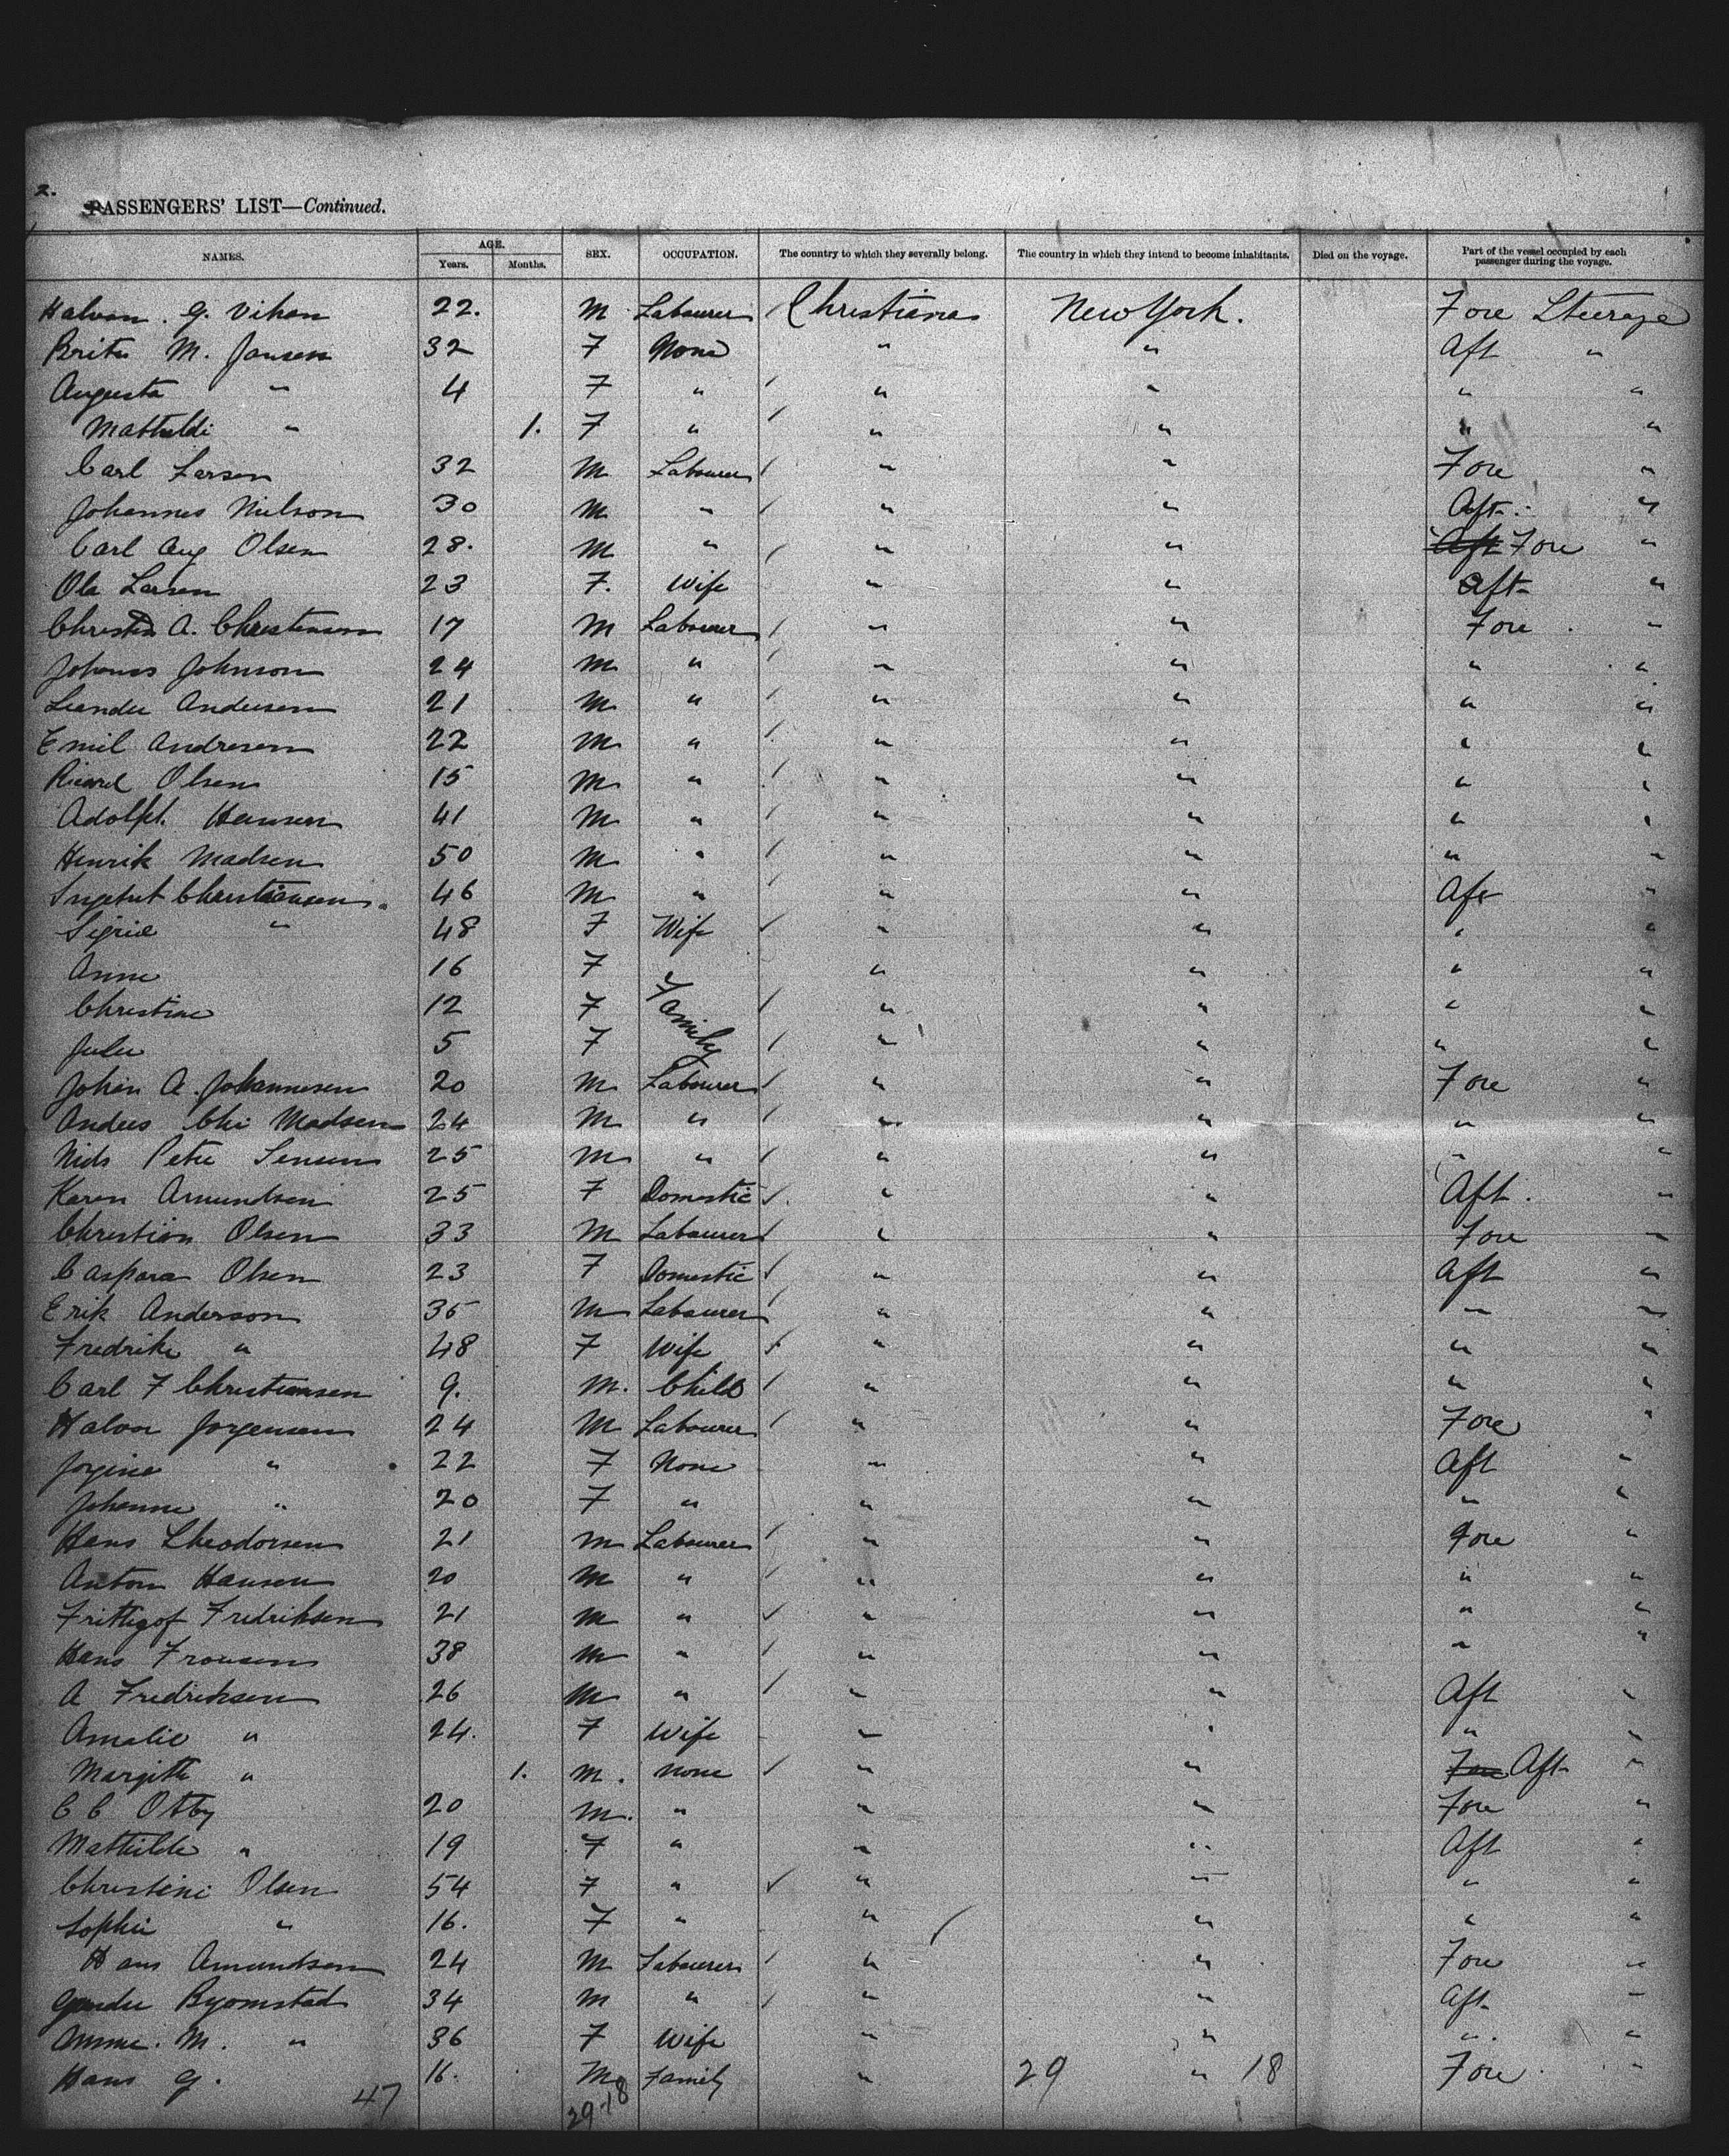 2.
PASSENGERS' LIST—Continued.
NAMES. AGE. Years. Months. SEX. OCCUPATION. The country to which they severally belong. The country in which they intend to become inhabitants. Died on the voyage. Part of the vessel occupied by each passenger during the voyage.
Halvon G. Viken 22. M Labourer Christiania New York. Fore Steerage
M. Jansen 32 F None " " Aft "
Augusta " 4 F " " " " "
Mathildi " 1. F " " " " "
Carl Larsen 32 M Labourer " " Fore "
Johannes Nielson 30 M " " " Aft "
Carl Aug Olsen 28. M " " " Aft Fore "
Ola Larsen 23 F. Wife " " Aft "
A. Christensen 17 M Labourer " " Fore "
Johnson 24 M " " " " "
Andersen 21 M " " " " "
Emil Andresen 22 M " " " " "
Olsen 15 M " " " " "
Adolph Hansen 41 M " " " " "
Henrik Madsen 50 M " " " " "
Christiansen 46 M " " " Aft "
Sigrid " 48 F Wife " " " "
Anne 16 F " " " "
Christine 12 F Family " " " "
Julie 5 F " " " "
Johan A. Johannesen 20 M Labourer " " Fore "
Andres Chr Madsen 24 M " " " " "
Niels Peter Jensen 25 M " " " " "
Karen Amundsen 25 F Domestic " " Aft. "
Christian Olsen 33 M Labourer " " Fore "
Caspara Olsen 23 F Domestic " " Aft "
Erik Anderson 35 M Labourer " " " "
Fredrike " 48 F Wife " " " "
Carl F Christiansen 9. M. Child " " " "
Halvor Jorgensen 24 M Labourer " " Fore "
Jorgine " 22 F None " " Aft "
Johanne " 20 F " " " " "
Hans Theodorsen 21 M Labourer " " Fore "
Anton Hansen 20 M " " " " "
Frithgof Fredriksen 21 M " " " " "
Hans Fronsen 38 M " " " " "
A Fredriksen 26 M " " " Aft "
Amalie " 24. F Wife " " " "
Margith " 1. M. None " " Fore Aft "
C C Otby 20 M. " " " Fore "
Mathilde " 19 F " " " Aft "
Christine Olsen 54 F " " " " "
Sophie " 16. F " " " " "
Hans Amundsen 24 M Labourer " " Fore "
Byomstad 34 M " " " Aft "
Anne. M. " 36 F Wife " " " "
Hans G. 16. M Family " 29 " 18 Fore "
47 29-18